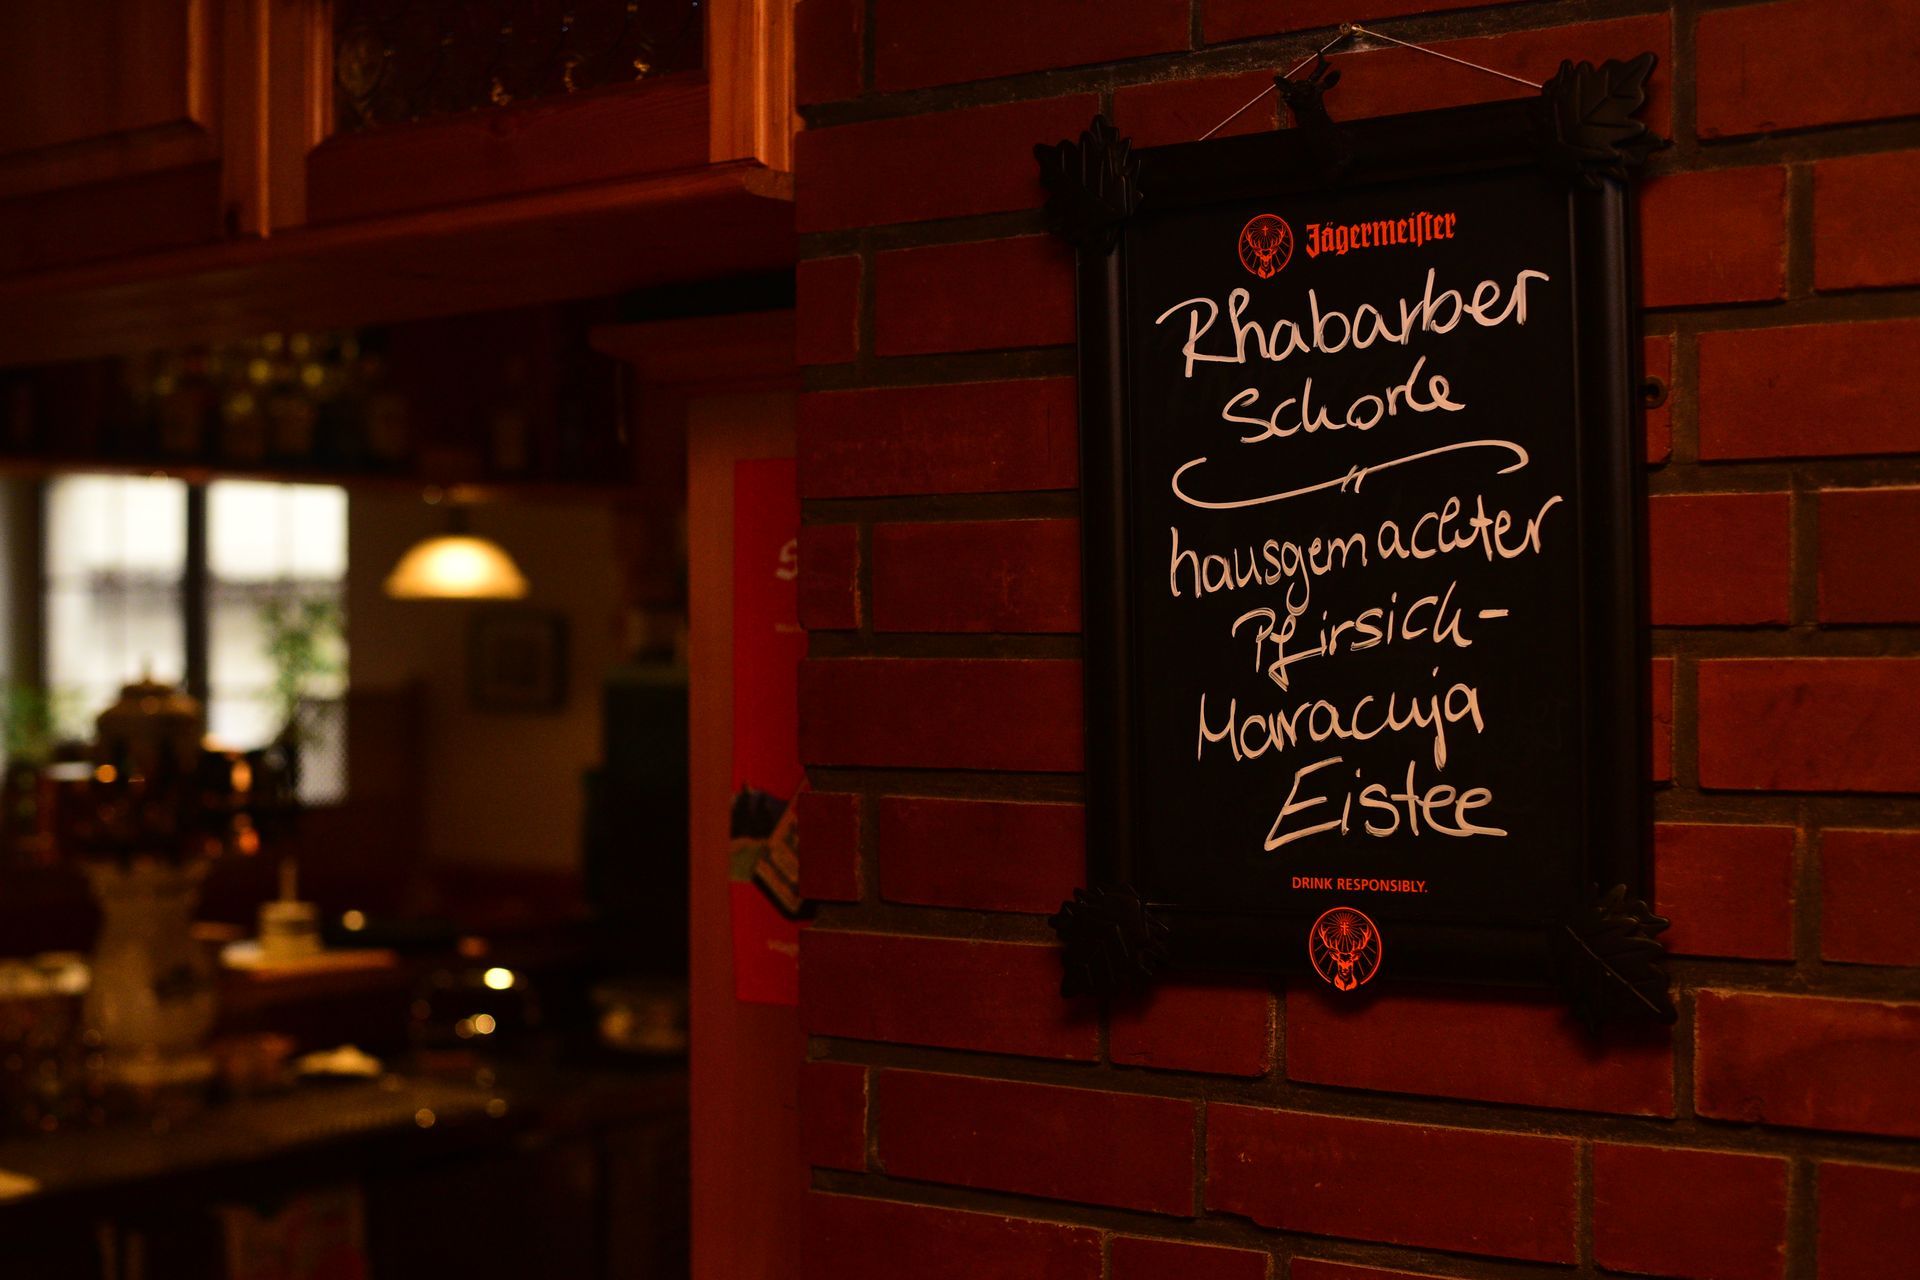 Jägermeiſter
Rhabarber
Schorle
hausgemachter
Pfirsich-
Maracuja
Eistee
DRINK RESPONSIBLY.